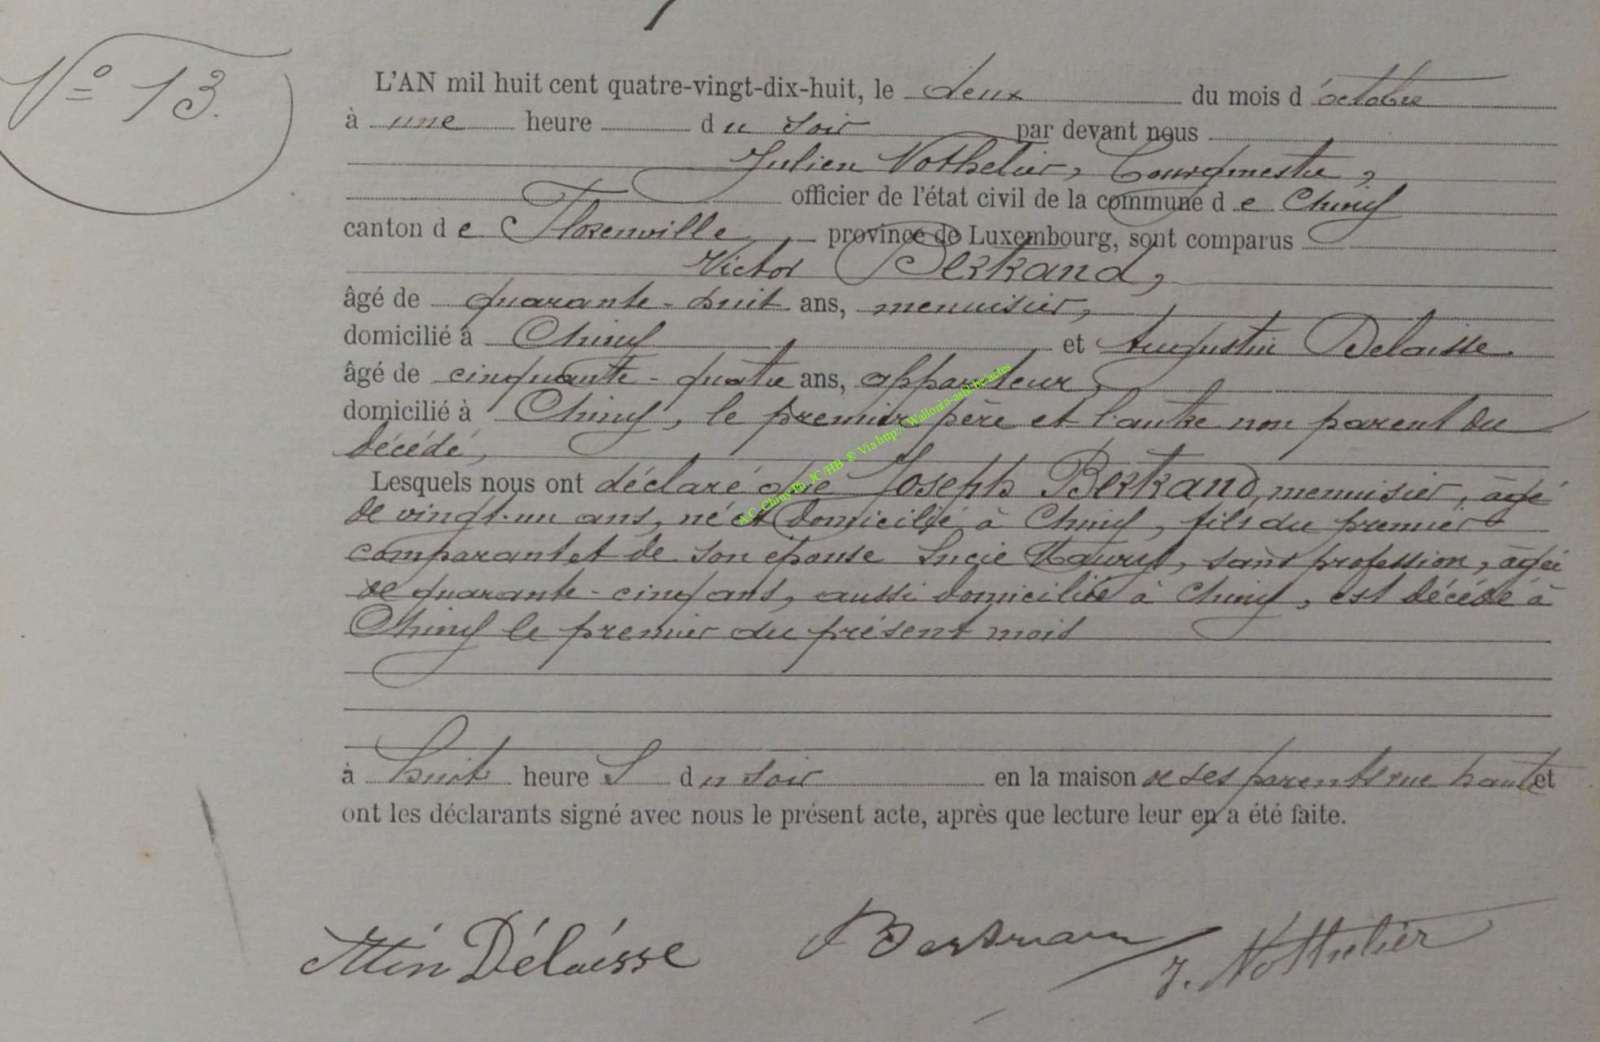 N° 13.
L'AN mil huit cent quatre-vingt-dix-huit, le deux du mois d'octobre
à une heure du soir par devant nous
Julien Nothelier, bourgmestre,
officier de l'état civil de la commune de Chiny
canton de Florenville, province de Luxembourg, sont comparus
Victor Bertrand,
âgé de quarante-huit ans, menuisier,
domicilié à Chiny et Augustin Delaisse.
âgé de cinquante-quatre ans, appariteur,
domicilié à Chiny, le premier père et l'autre non parent du
décédé,
Lesquels nous ont déclaré que Joseph Bertrand, menuisier, âgé
de vingt-un ans, né et domicilié à Chiny, fils du premier
comparant et de son épouse Lucie Maury, sans profession, âgée
de quarante-cinq ans, aussi domiciliée à Chiny, est décédé à
Chiny le premier du présent mois
à huit heures du soir en la maison de ses parents rue haute et
ont les déclarants signé avec nous le présent acte, après que lecture leur en a été faite.
Délaisse Bertrand J. Nothelier